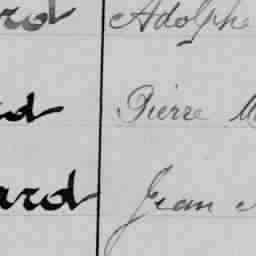 rd Adolph
rd Pierre M
ard Jean